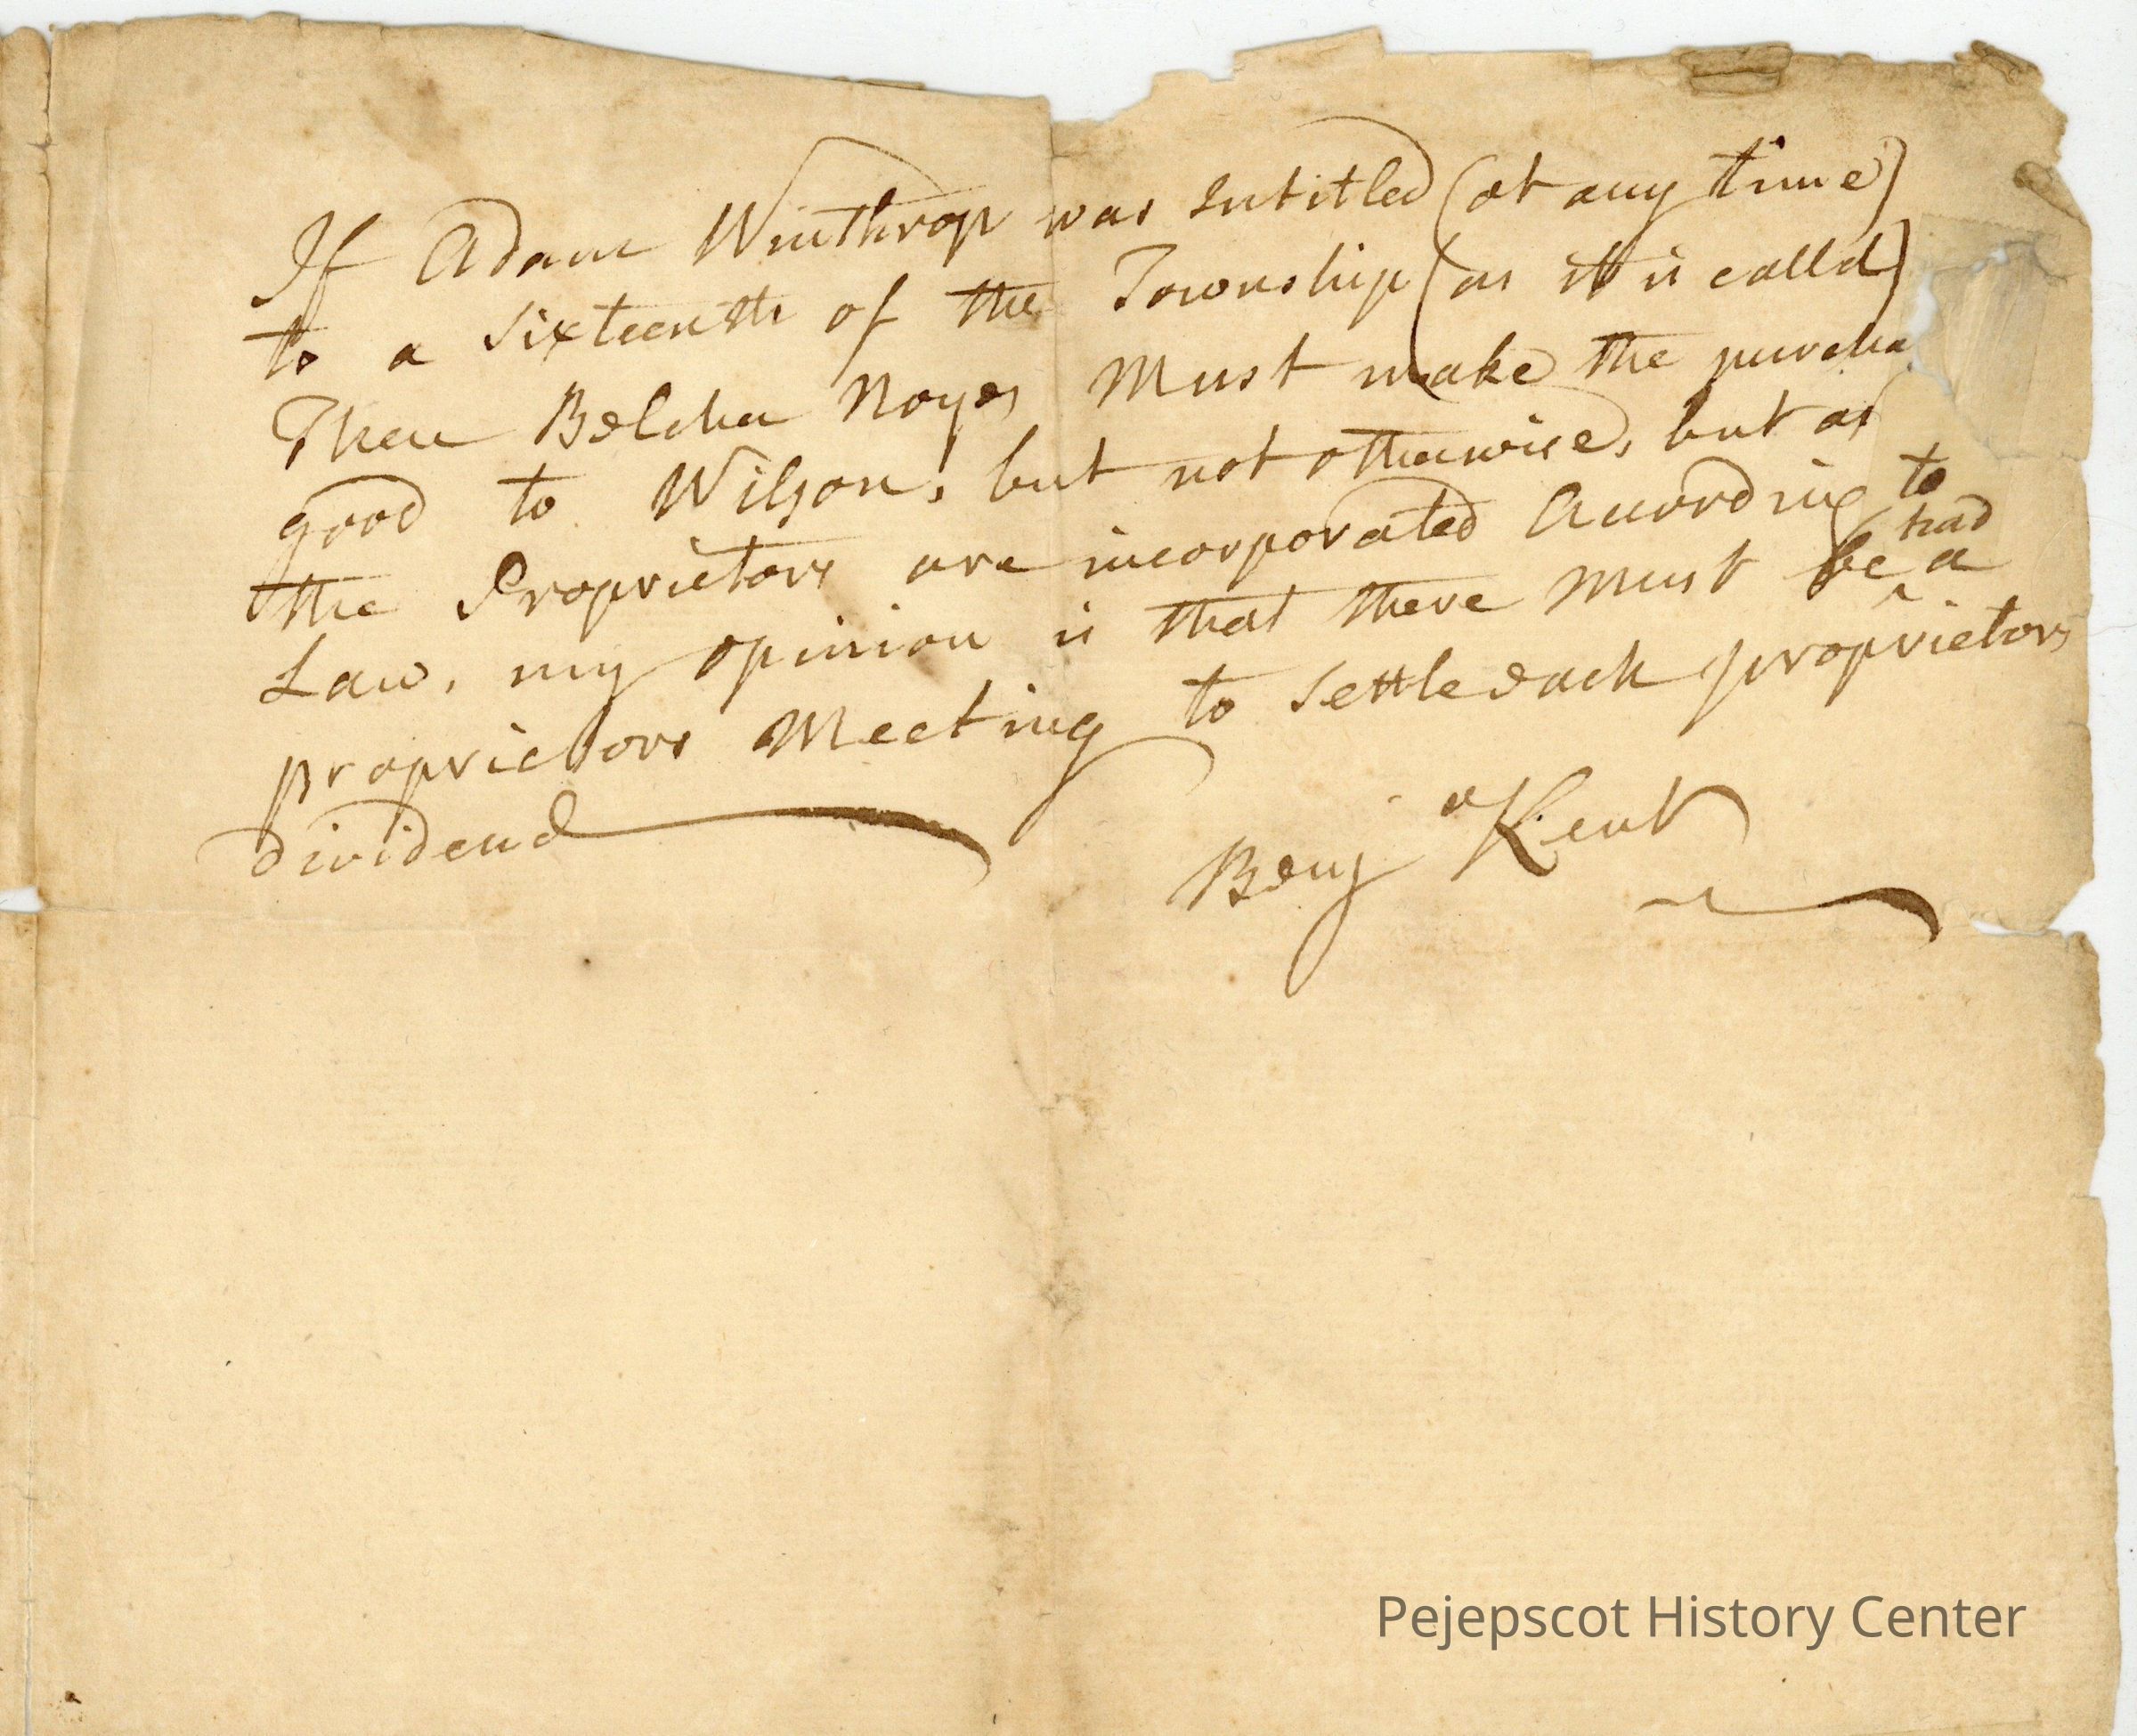 If Adam Winthrop was Entitled (at any time)
to a Sixteenth of the Township (as it is calld)
Then Belcher Noyes Must make the purcha
good to Wilson, but not otherwise, but as
the Proprietors are incorporated According to
Law, my opinion is that there Must be had a
proprietors Meeting to Settle each proprietors
dividend
Benj Kent
Pejepscot History Center